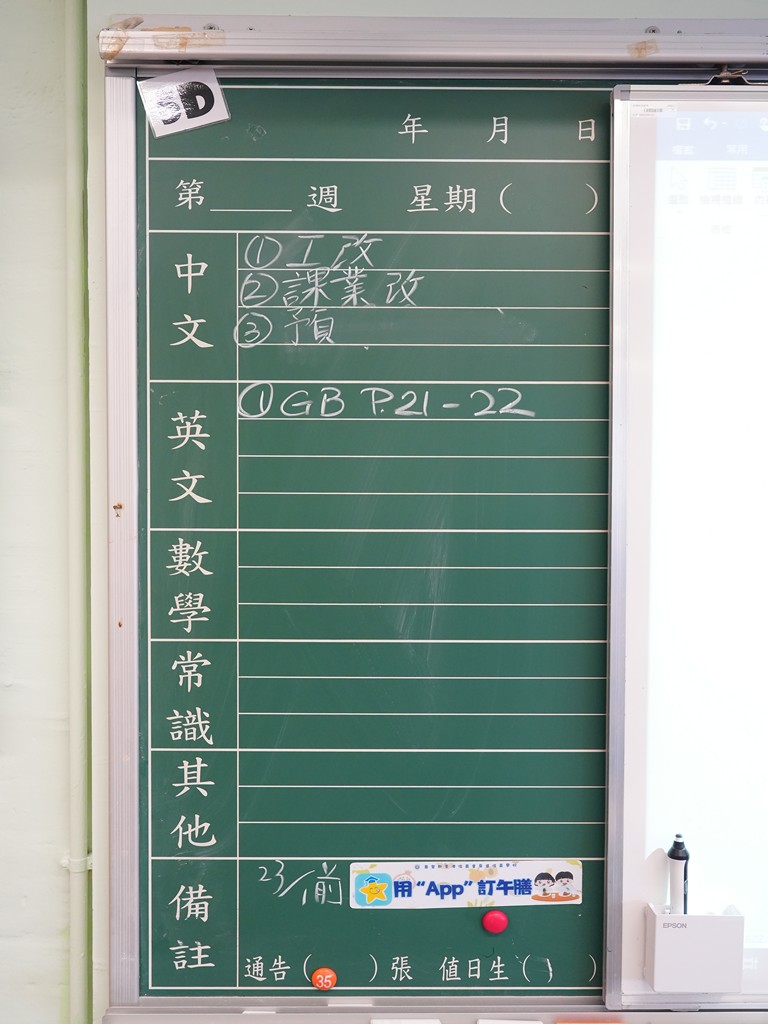 5D
年 月 日
第____週 星期( )
中文
①工改
②課業改
③預
英文
①GB P.21-22
數學
常識
其他
備註
23/前
用“App”訂午膳
通告( 35 )張 值日生( )
EPSON